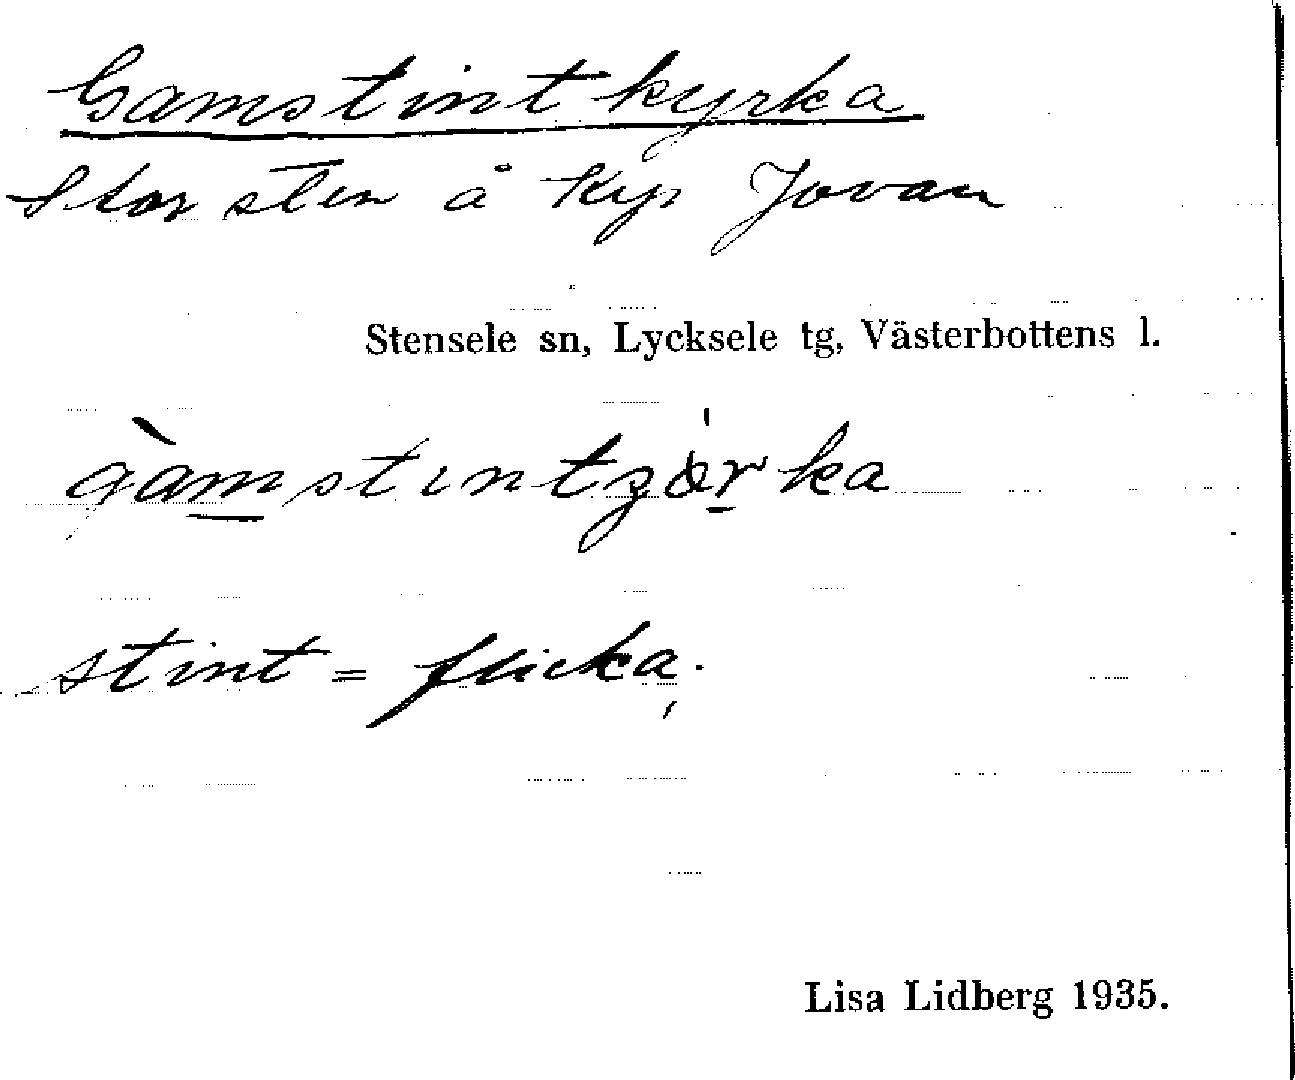 Gamstintkyrka
Stor sten å kyr Jovan
Stensele sn, Lycksele tg, Västerbottens l.
stint = flicka.
Lisa Lidberg 1935.